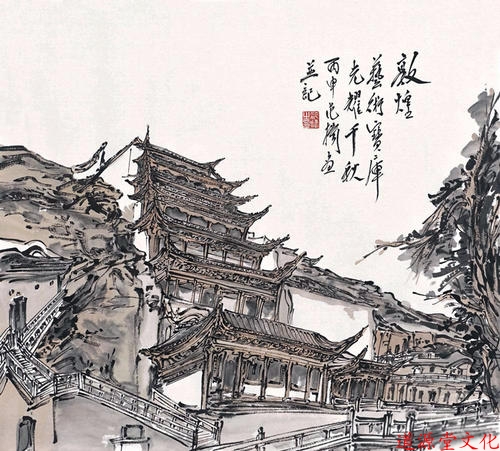 敦煌
藝術寶庫
光耀千秋
丙申
並記
道源堂文化